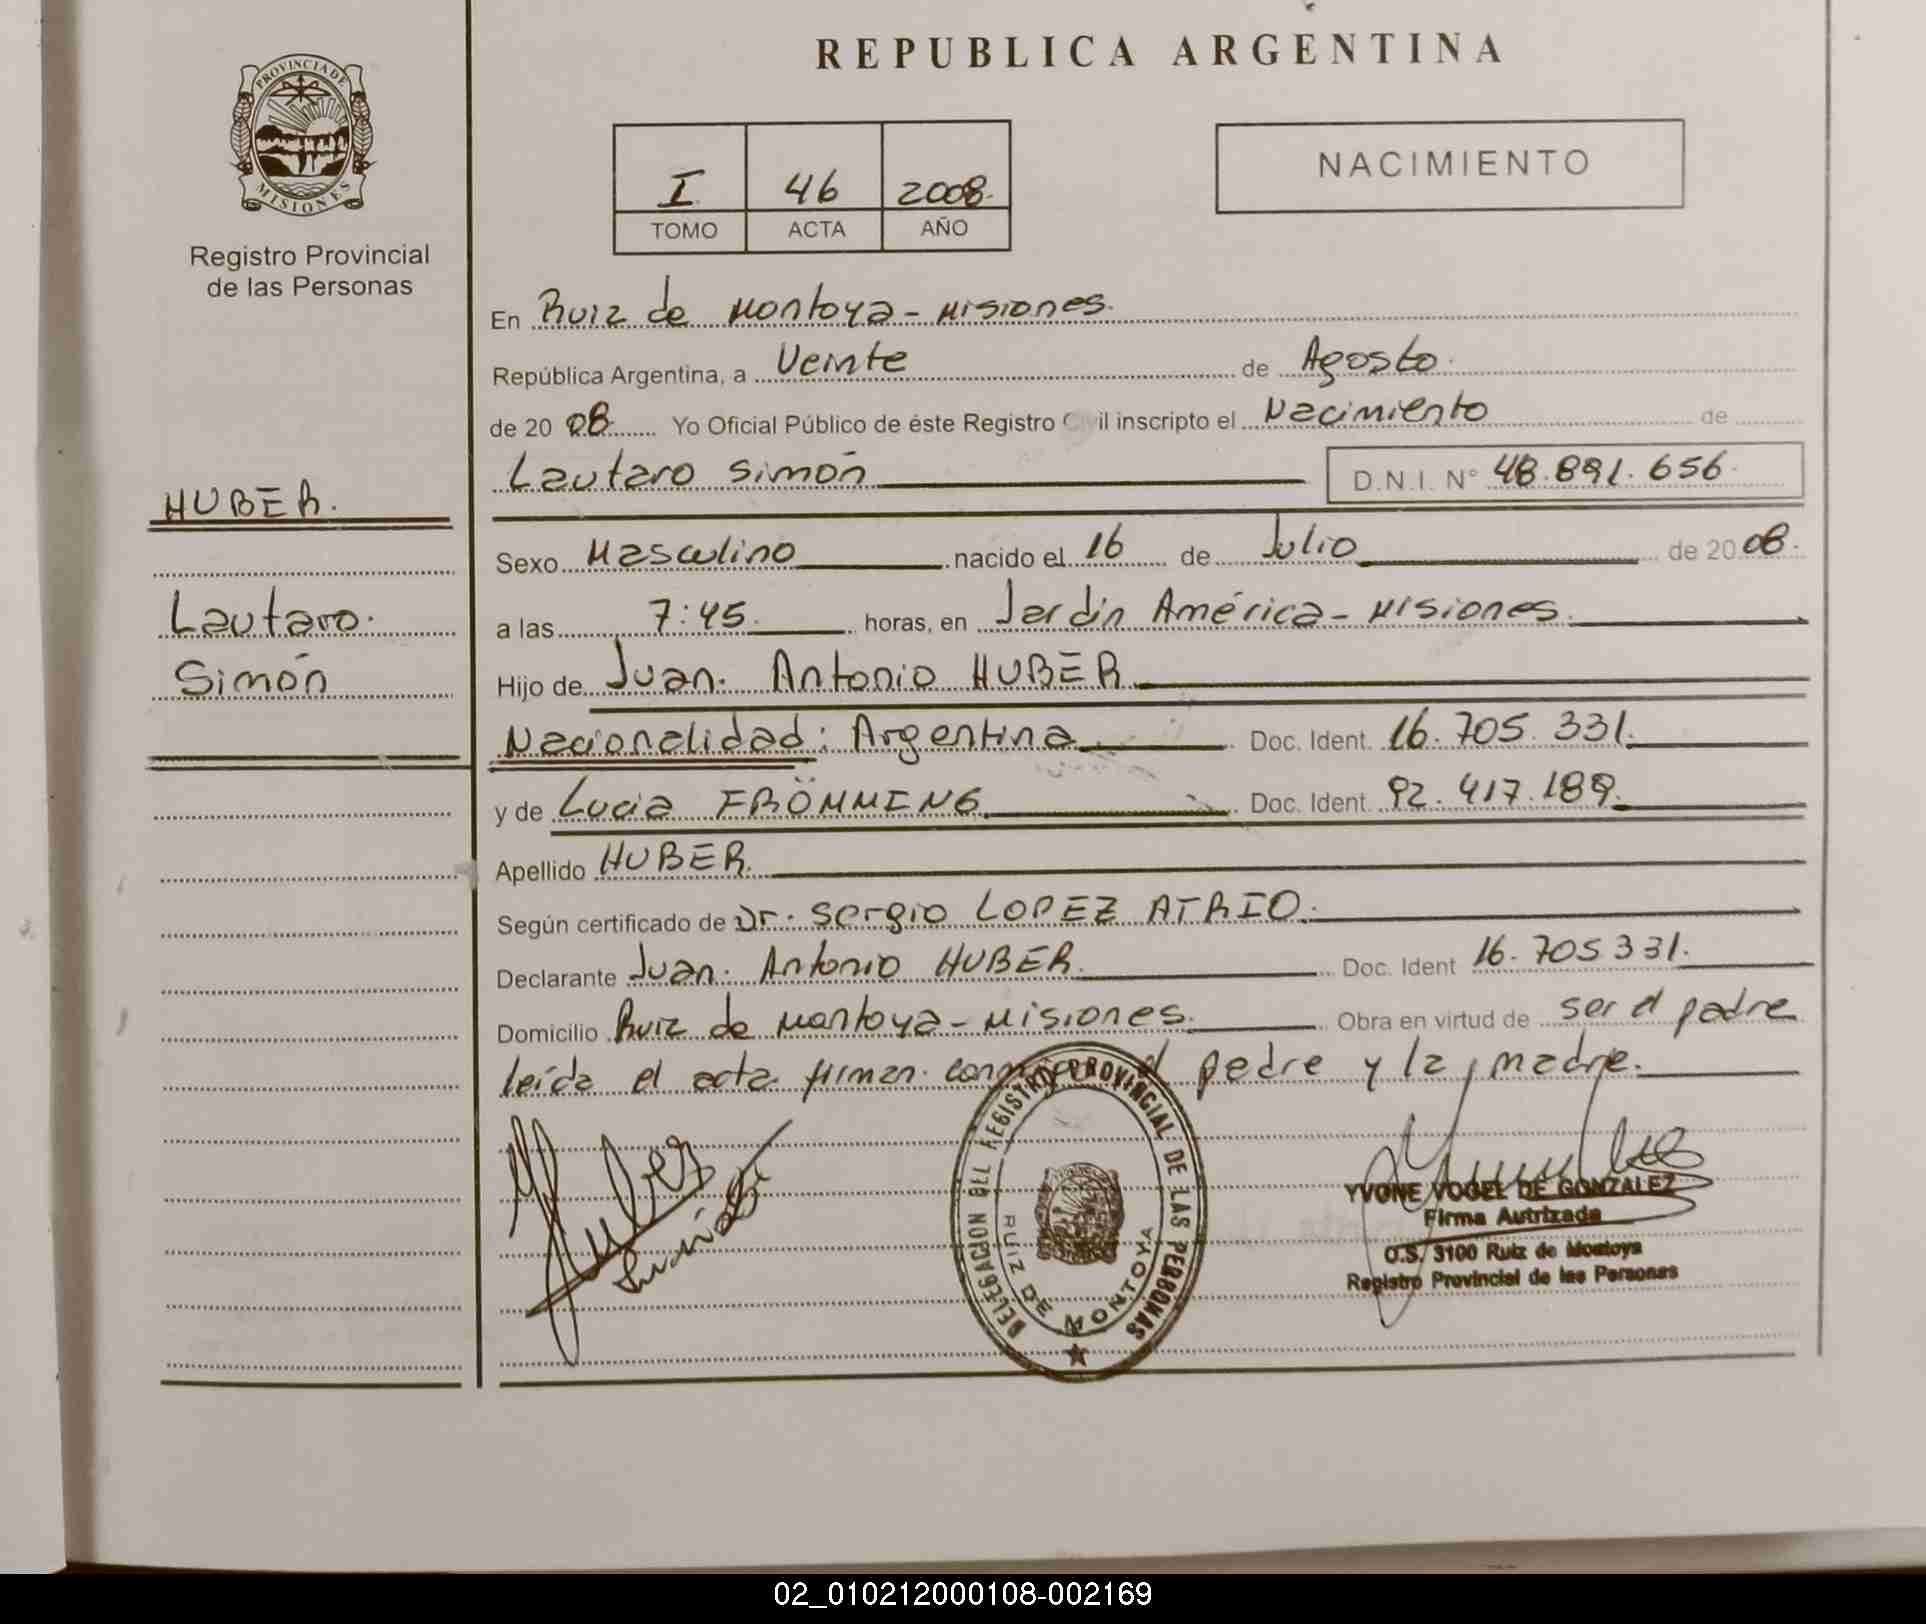 REPUBLICA ARGENTINA
PROVINCIA DE
MISIONES
Registro Provincial
de las Personas
I 46 2008.
TOMO ACTA AÑO
NACIMIENTO
En Ruiz de Montoya - Misiones.
República Argentina, a Veinte de Agosto.
de 20 08. Yo Oficial Público de éste Registro Civil inscripto el Nacimiento de
Lautaro Simón D.N.I. Nº 48.891.656.
HUBER.
Lautaro.
Simón
Sexo Masculino nacido el 16 de Julio de 20 08.
a las 7:45. horas, en Jardín América - Misiones.
Hijo de Juan. Antonio HUBER
Nacionalidad: Argentina Doc. Ident. 16.705.331.
y de Lucia FRÖMMING Doc. Ident. 92.417.189.
Apellido HUBER.
Según certificado de Dr. Sergio LOPEZ ATRIO.
Declarante Juan. Antonio HUBER. Doc. Ident 16.705331.
Domicilio Ruiz de Montoya - Misiones. Obra en virtud de ser el padre
leída el acta firman conmigo el padre y la madre.
Huber
DELEGACION DEL REGISTRO PROVINCIAL DE LAS PERSONAS
RUIZ DE MONTOYA
YVONE VOGEL DE GONZALEZ
Firma Autrizada
O.S. 3100 Ruiz de Montoya
Registro Provincial de las Personas
02_010212000108-002169